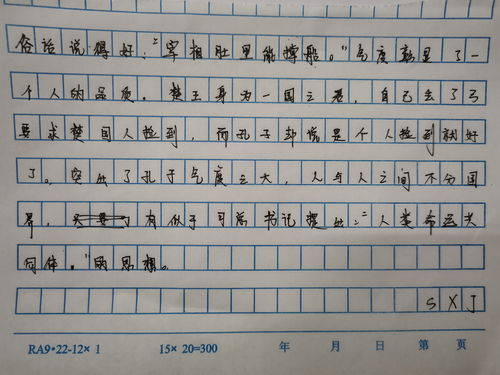 俗话说得好："宰相肚里能撑船。"气度彰显了一
个人的品质。楚王身为一国之君，自己丢了弓
要求楚国人捡到，而孔子却说是个人捡到就好
了。突出了孔子气度之大，人与人之间不分国
界，有似于习总书记提出："人类命运共
同体。"的思想。
SXJ
RA9·22-12×1 15×20=300 年 月 日 第 页